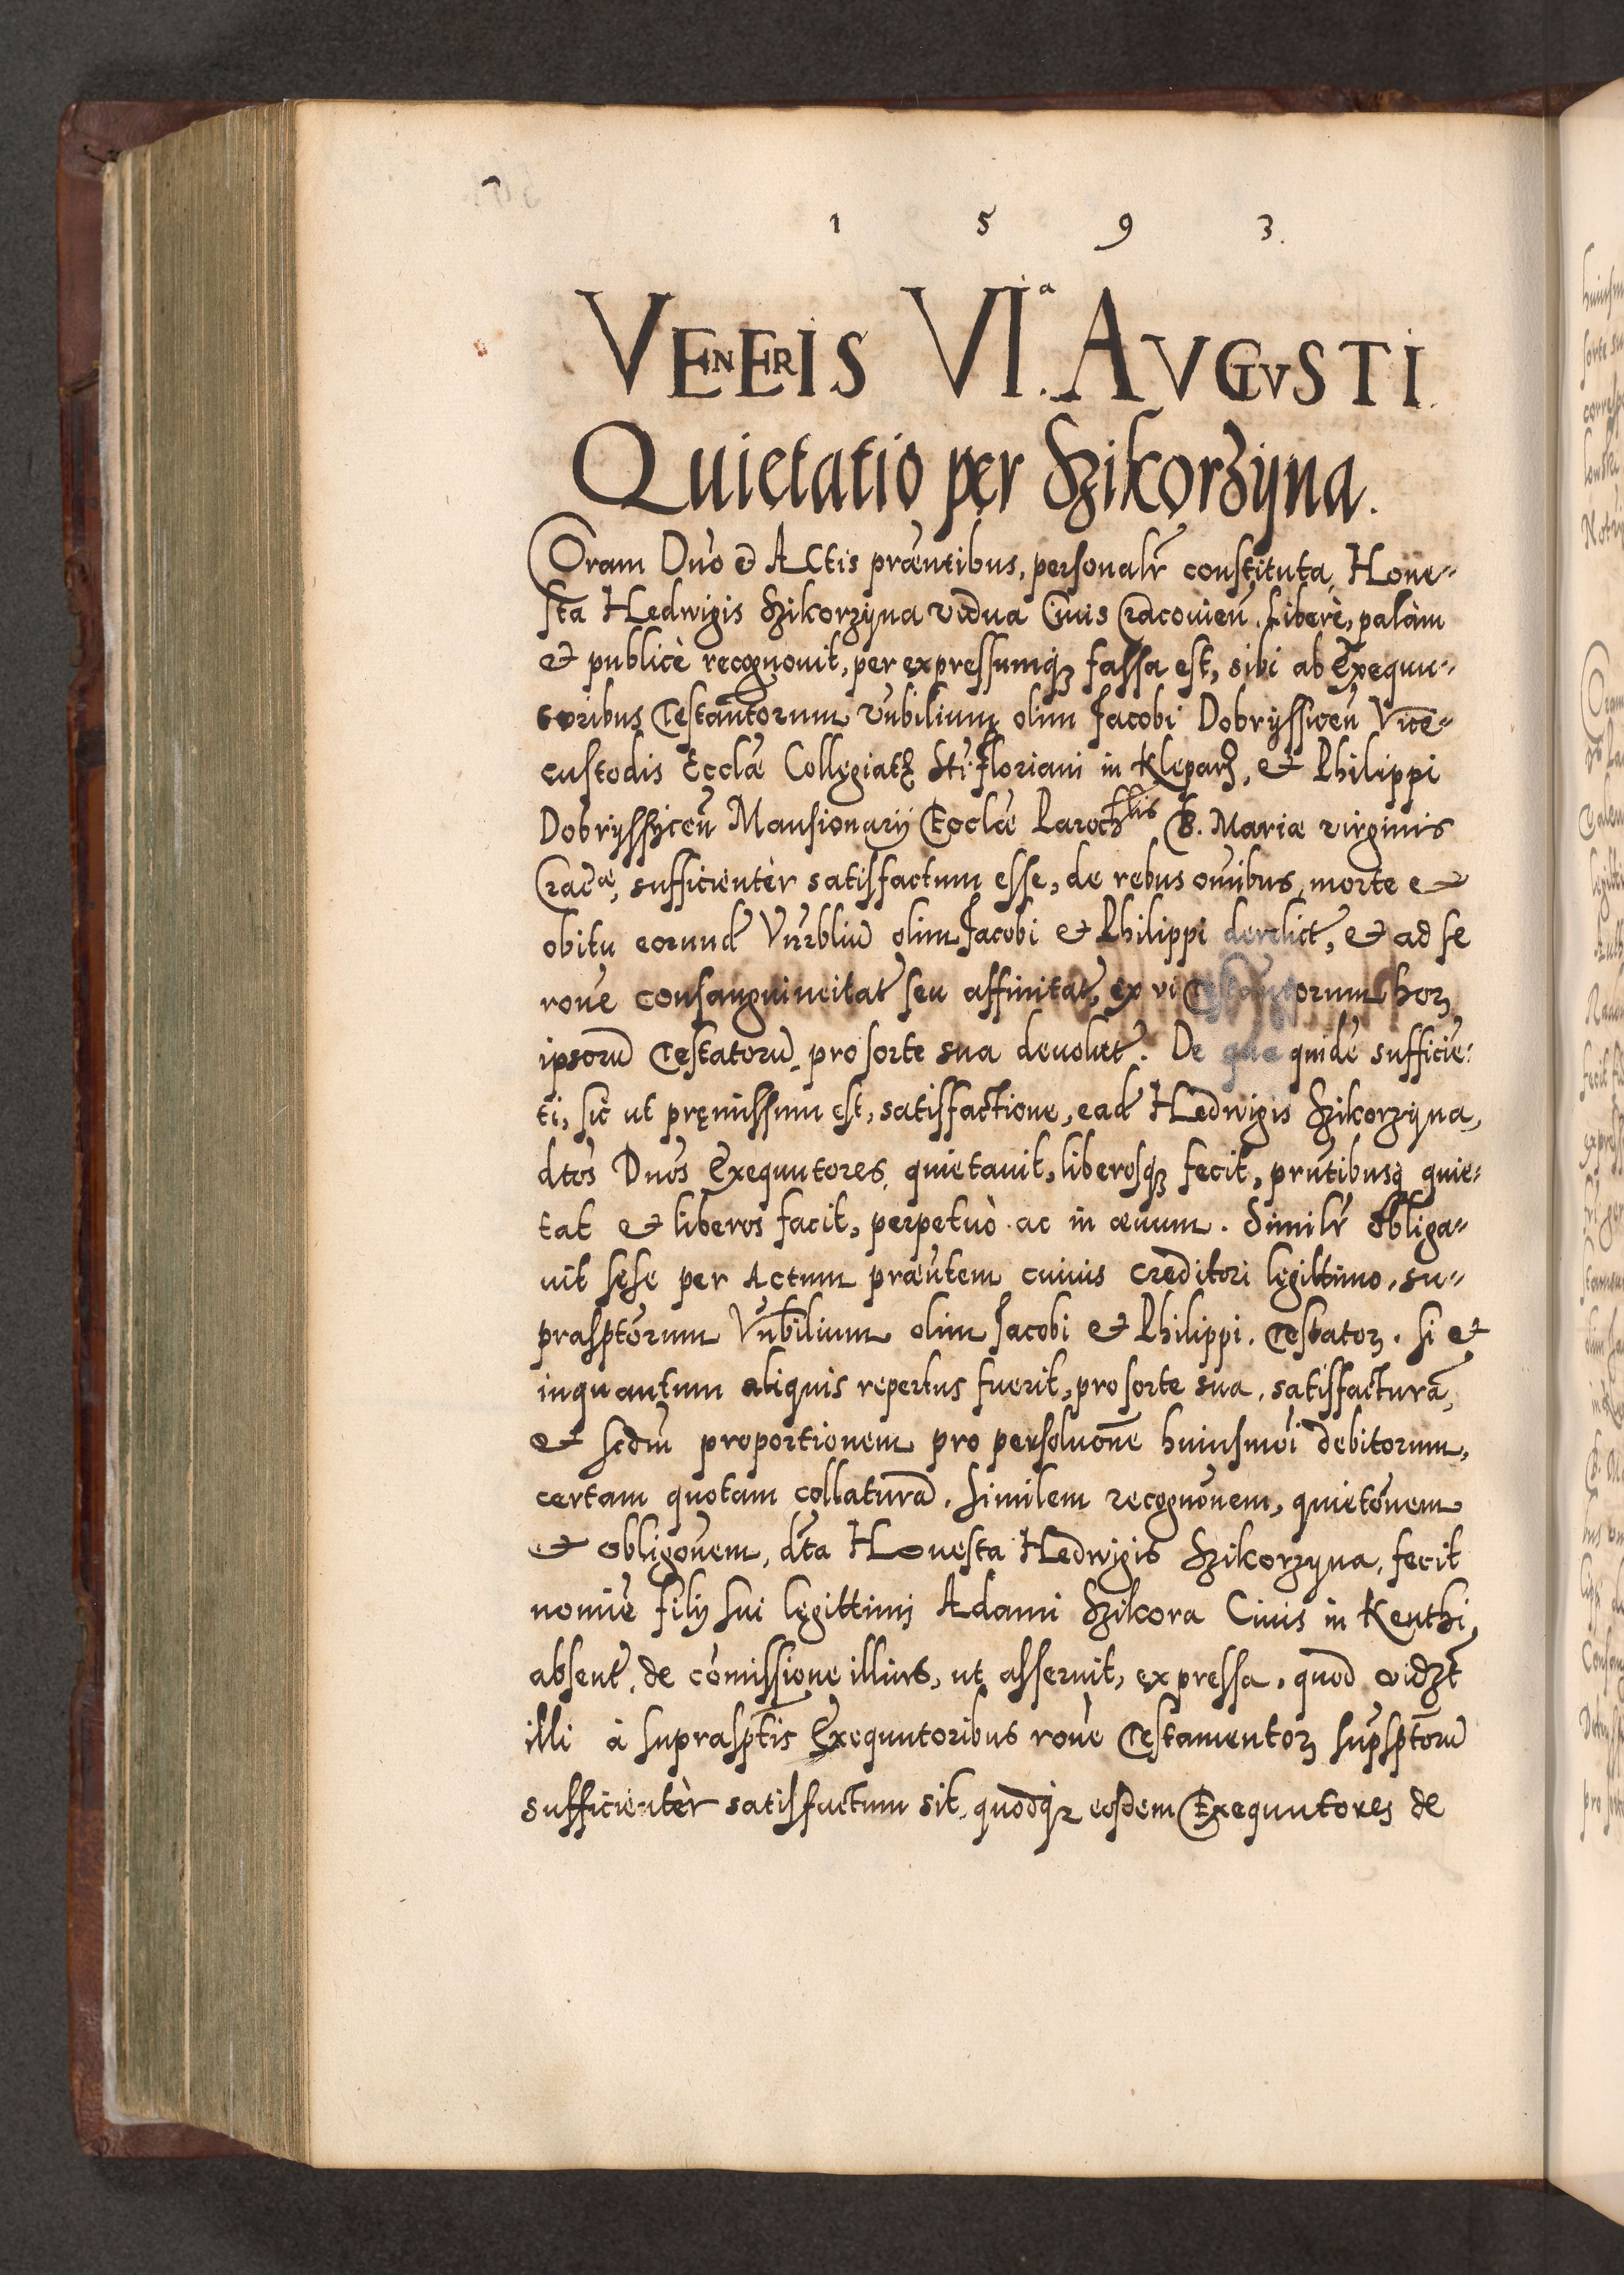 1 5 9 3.
VENERIS VI.ª AVGVSTI.
Quietatio per Szikorzÿna.
Coram Dn̄o et Actis præn̄tibus, personalr̄ constituta Hone=
sta Hedwigis Szikorzÿna vidua Ciuis Cracouien̄. Liberè, palàm
et publicè recognouit, per expressumqꝫ fassa est, sibi ab Exequu=
toribus Testam̄torum Vn̄bilium olim Jacobi Dobrÿssicen̄ Vice=
custodis Ecclǣ Collegiatę Sti. Floriani in Klepar, et Philippi
Dobrÿssÿcen̄ Mansionarÿ Ecclǣ Parochlis B. Mariæ virginis
Crac̄æ, sufficientèr satisfactum esse, de rebus om̄ibus, morte et
obitu eorund̄ Vn̄rbliū olim Jacobi et Philippi derelict̄, et ad se
ron̄e consanguineitat̄ seu affinitat̄, ex vi Testam̄torum hoꝝ
ipsorū Testatorū pro sorte sua deuolut̄. De qua quidē sufficiē=
ti, sic ut pręmissum est, satisfactione, ead̄ Hedwigis Szikorzÿna,
dtōs Dn̄os Exequutores quietauit, liberosqꝫ fecit, prn̄tibusqꝫ quie=
tat et liberos facit, perpetuò ac in æuum. Similr̄ obliga=
uit sese per Actum præn̄tem cuiuis creditori legittimo, su=
prasptōrum Vn̄bilium olim Jacobi et Philippi. Testatoꝝ. si et
inquantum aliquis repertus fuerit, pro sorte sua, satisfacturā,
et scdm̄ proportionem pro persoluōne huiusmōi debitorum,
certam quotam collaturā. Similem recognōnem, quietōnem
et obligōnem, dt̄a Honesta Hedwigis Szikorzyna, fecit
nomīe filÿ sui legittimi Adami Szikora Ciuis in Kenthi,
absent̄, de cōmissione illius, ut asseruit, expressa, quod vidzt̄
illi à suprasptīs Exequutoribus ron̄e Testamentoꝝ supsptōrū
sufficientèr satisfactum sit, quodqꝫ eosdem Exequutores de